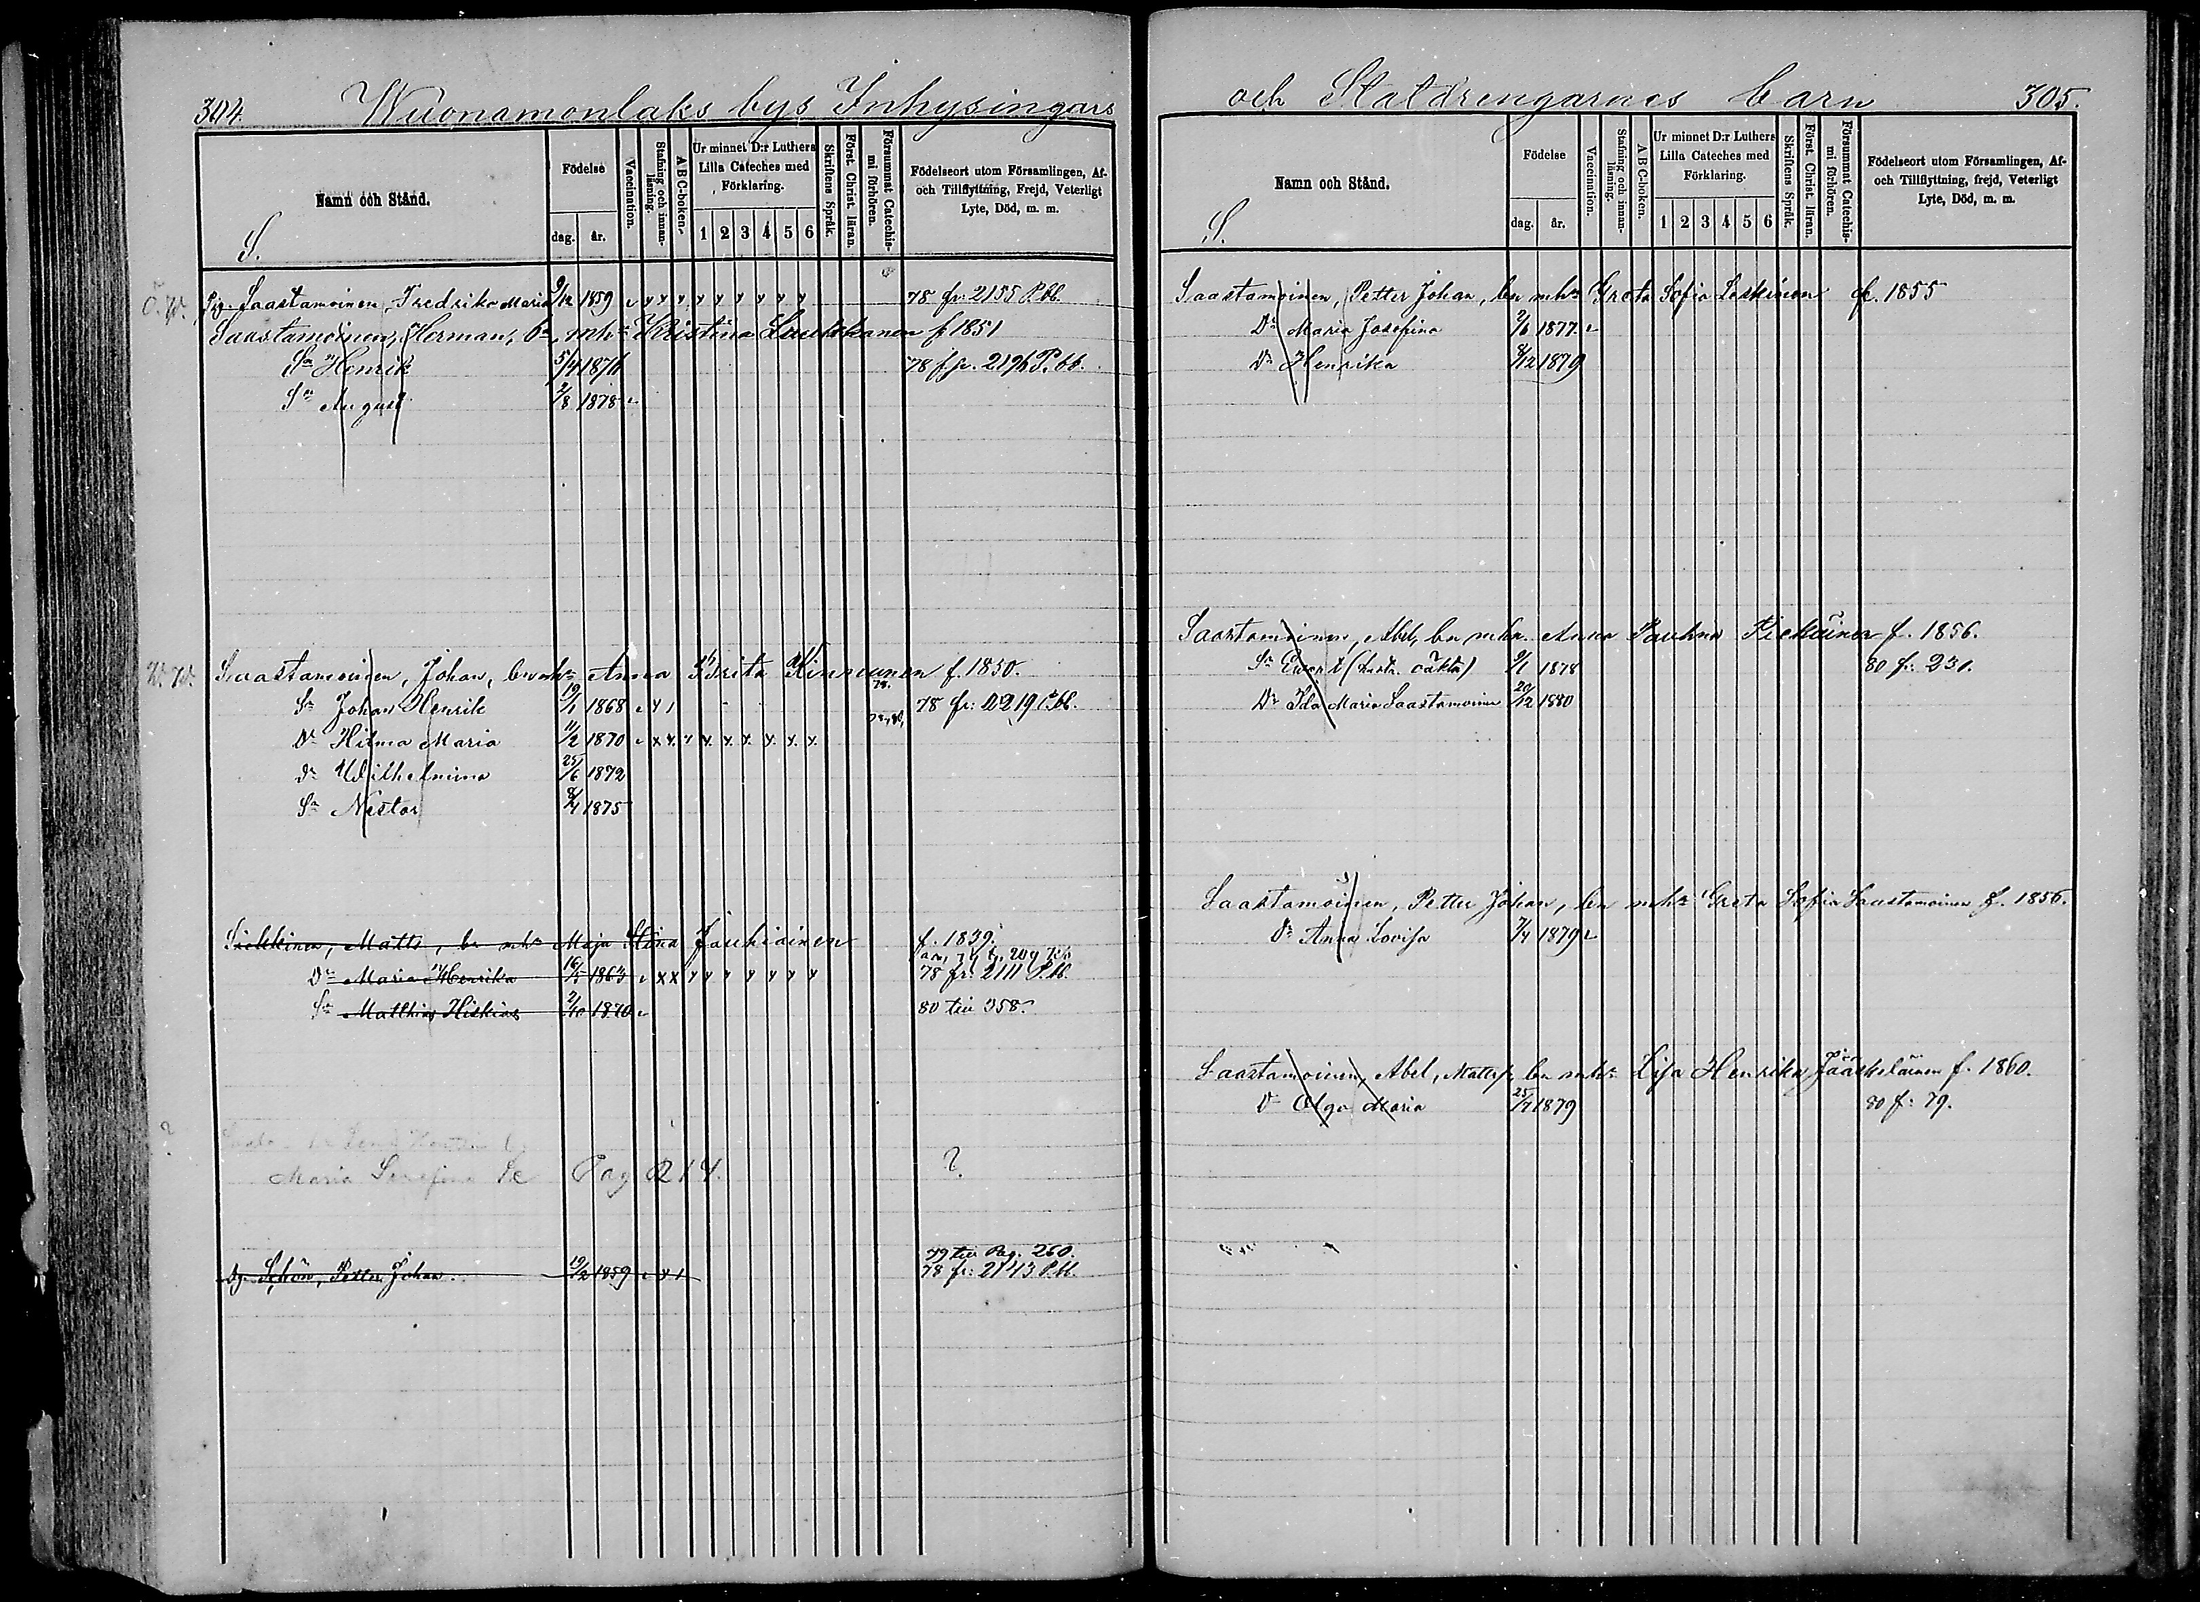 304. Wuonamonlaks bys Inhysingars
Namn och Stånd.
Födelse
dag. år.
Vaccination.
Stafning och innanläsning.
ABC-boken.
Ur minnet D:r Luthers Lilla Cateches med Förklaring.
1 2 3 4 5 6
Skriftens Språk.
Först. Christ. läran.
Försummat Catechismi förhören.
Födelseort utom Församlingen, Af- och Tillflyttning, Frejd, Veterligt Lyte, Död, m. m.
S.
Pig. Saastamoinen, Fredrika Maria 9/12 1859 78 fr: 2155 P.bb.
Saastamoinen, Herman, bn mhu Kristina f 1851
Sn Henrik 5/4 1876 78 fr. 2196 P.bb.
Sn August 2/8 1878
Saastamoinen, Johan, bn mhu Anna Brita Kinnunen f. 1850.
Sn Johan Henrik 19/1 1868 78 fr: 2219 P.bb.
Dr Hilma Maria 11/2 1870
Dr Wilhelmina 25/6 1872
Sn Nestor 8/4 1875
Matts, bn mhu Maja Stina Jauhiainen f. 1839.
Dr Maria Henrika 16/5 1863 78 fr: 2111 P.bb.
Sn Matthias Hiskias 2/10 1870 80 till 358.
?
Maria Serafina Pag 214. ?
79 till Pag. 260.
Dg. Schön, Petter Johan 19/2 1859 78 fr: 2143 P.bb.
och Statdrengarnes barn 305.
Namn och Stånd.
Födelse
dag. år.
Vaccination.
Stafning och innanläsning.
ABC-boken.
Ur minnet D:r Luthers Lilla Cateches med Förklaring.
1 2 3 4 5 6
Skriftens Språk.
Först. Christ. läran.
Försummat Catechismi förhören.
Födelseort utom Församlingen, Af- och Tillflyttning, frejd, Veterligt Lyte, Död, m. m.
S.
Saastamoinen, Petter Johan, bn mhu Greta Sofia Leskinen f. 1855
Dr Maria Josefina 2/6 1877
Dr Henrika 8/12 1879
Saastamoinen, Abel, bn mhu Anna Paulina f. 1856.
Sn Evert 9/1 1878 80 fr: 231.
Dr Ida Maria Saastamoinen 20/12 1880
Saastamoinen, Petter Johan, bn mhu Greta Sofia Saastamoinen f. 1856.
Dr Anna Lovisa 7/4 1879
Saastamoinen, Abel, Mattsn bn mhu Lisa Henrika Jääskeläinen f. 1860.
Dr Olga Maria 25/7 1879 80 f: 79.